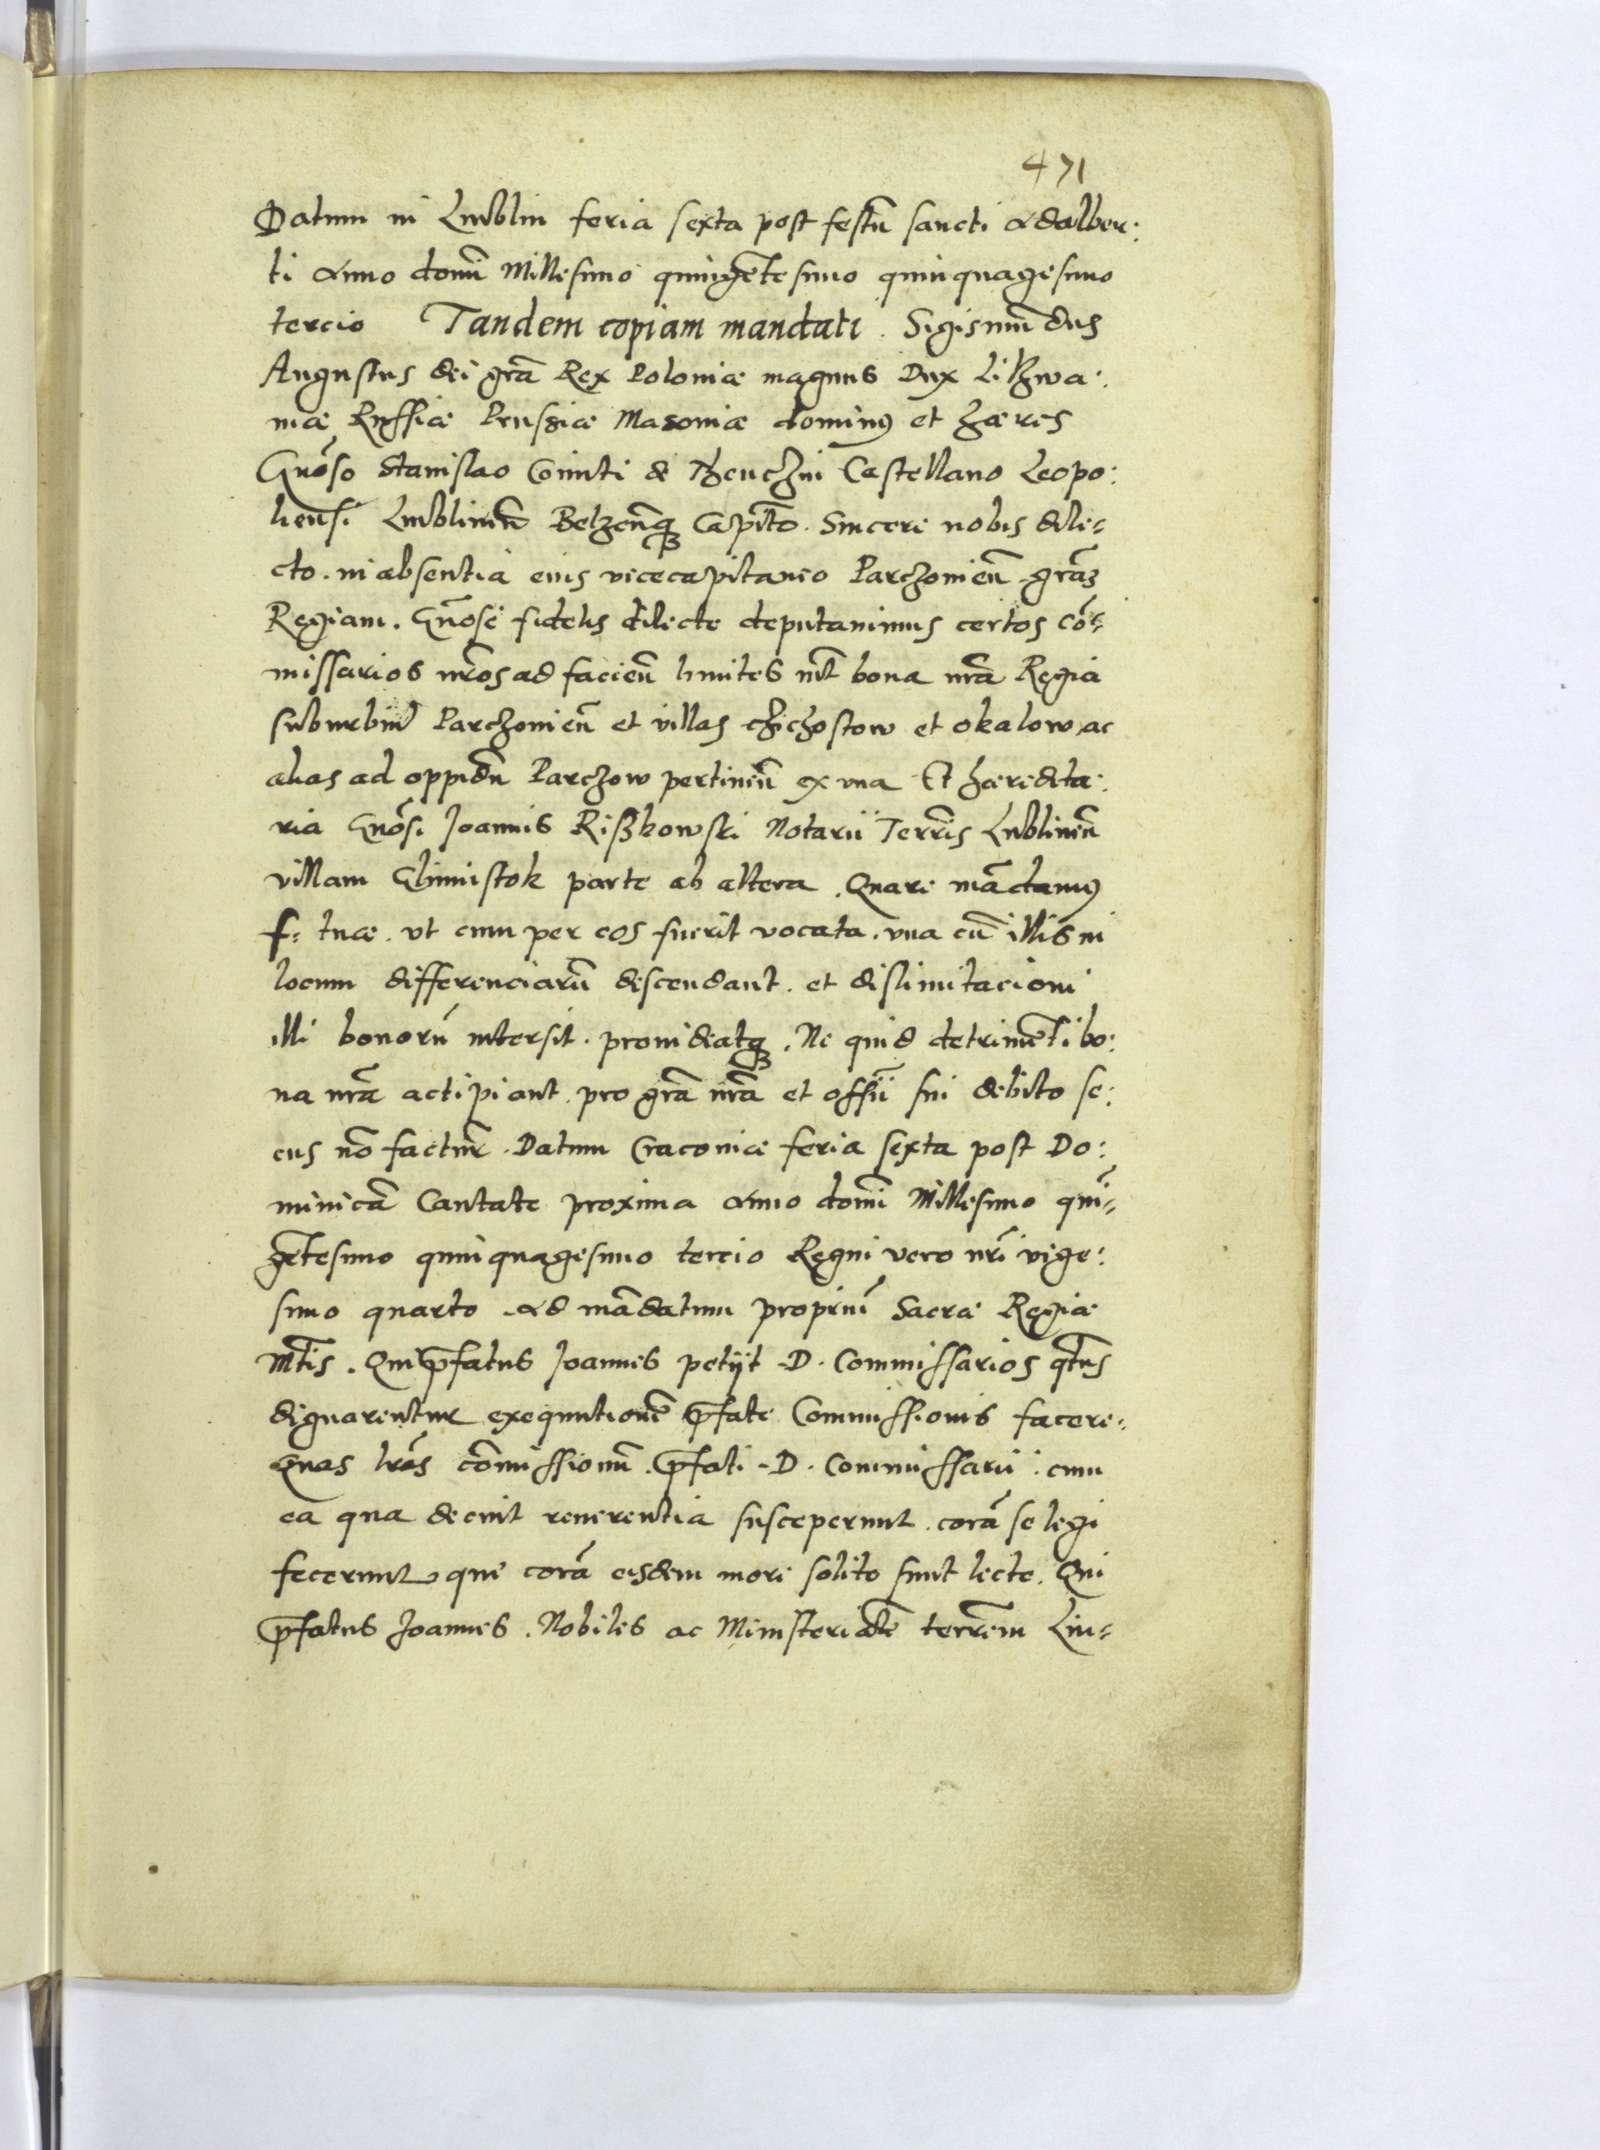 471
Datum in Lwblin feria sexta post festũ sancti Adalber:
ti Anno domĩ Millesimo quingẽtesimo quinquagesimo
tercio Tandem copiam mandati. Sigismũdus
Augustus dei grã Rex Poloniæ magnus Dux Lithwa:
niæ Russiæ Prussiæ Masoniæ dominꝰ et hæres
Gnõso Stanislao Comiti de Thenchin Castellano Leopo:
liensi Lwbliniñ Belzeñqꝫ Capitõ. Sincere nobis dile-
cto. in absentia eius vicecapitaneo Parczowieñ grãz
Regiam. Gñose fidelis dilecte deputauimus certos cõ-
missarios nr̃os ad facieñ limites int̃ bona nr̃a Regia
suburbiũ Parczowieñ et villas chichostow et okalow ac
alias ad oppidũ Parczow pertineñ ex una Et hæredita:
ria Gnõsi Joannis Rißkowski Notarii Terrĩs Lublineñ
villam Glinnistok parte ab altera. Quare mãdamꝰ
f: tuæ. vt cum per eos fuerit vocata. vna cũ illis in
locum differenciarũ descendant. et dislimitacioni
illi bonorũ intersit. prouideatqꝫ. Ne quid detrimẽti bo:
na nr̃a actipiant. pro grã nr̃a et offĩi sui debito se:
cus nõ factur̃. Datum Cracouiæ feria sexta post Do:
minicã Cantate proxima Anno domĩ Millesimo quĩ-
gẽtesimo quinquagesimo tercio Regni vero nr̃i vige:
simo quarto. Ad mãdatum propriũ Sacræ Regiæ
Mt̃is. Qui p̃fatus Joannes petijt D. Commissarios qt̃us
dignarentur exequutionẽ p̃fate Commissionis facere.
Quas lr̃as cõmissionũ. p̃fati D. Commissarii. cum
ea qua decuit reuerentia susceperunt. corã se legi
fecerunt que corã eisdem more solito sunt lecte. Qui
p̃fatus Joannes. Nobiles ac Ministerialẽ terrẽm Lu-